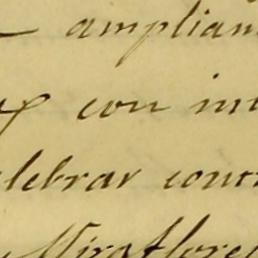 amplian
con in
lebrar cont
Miraflores